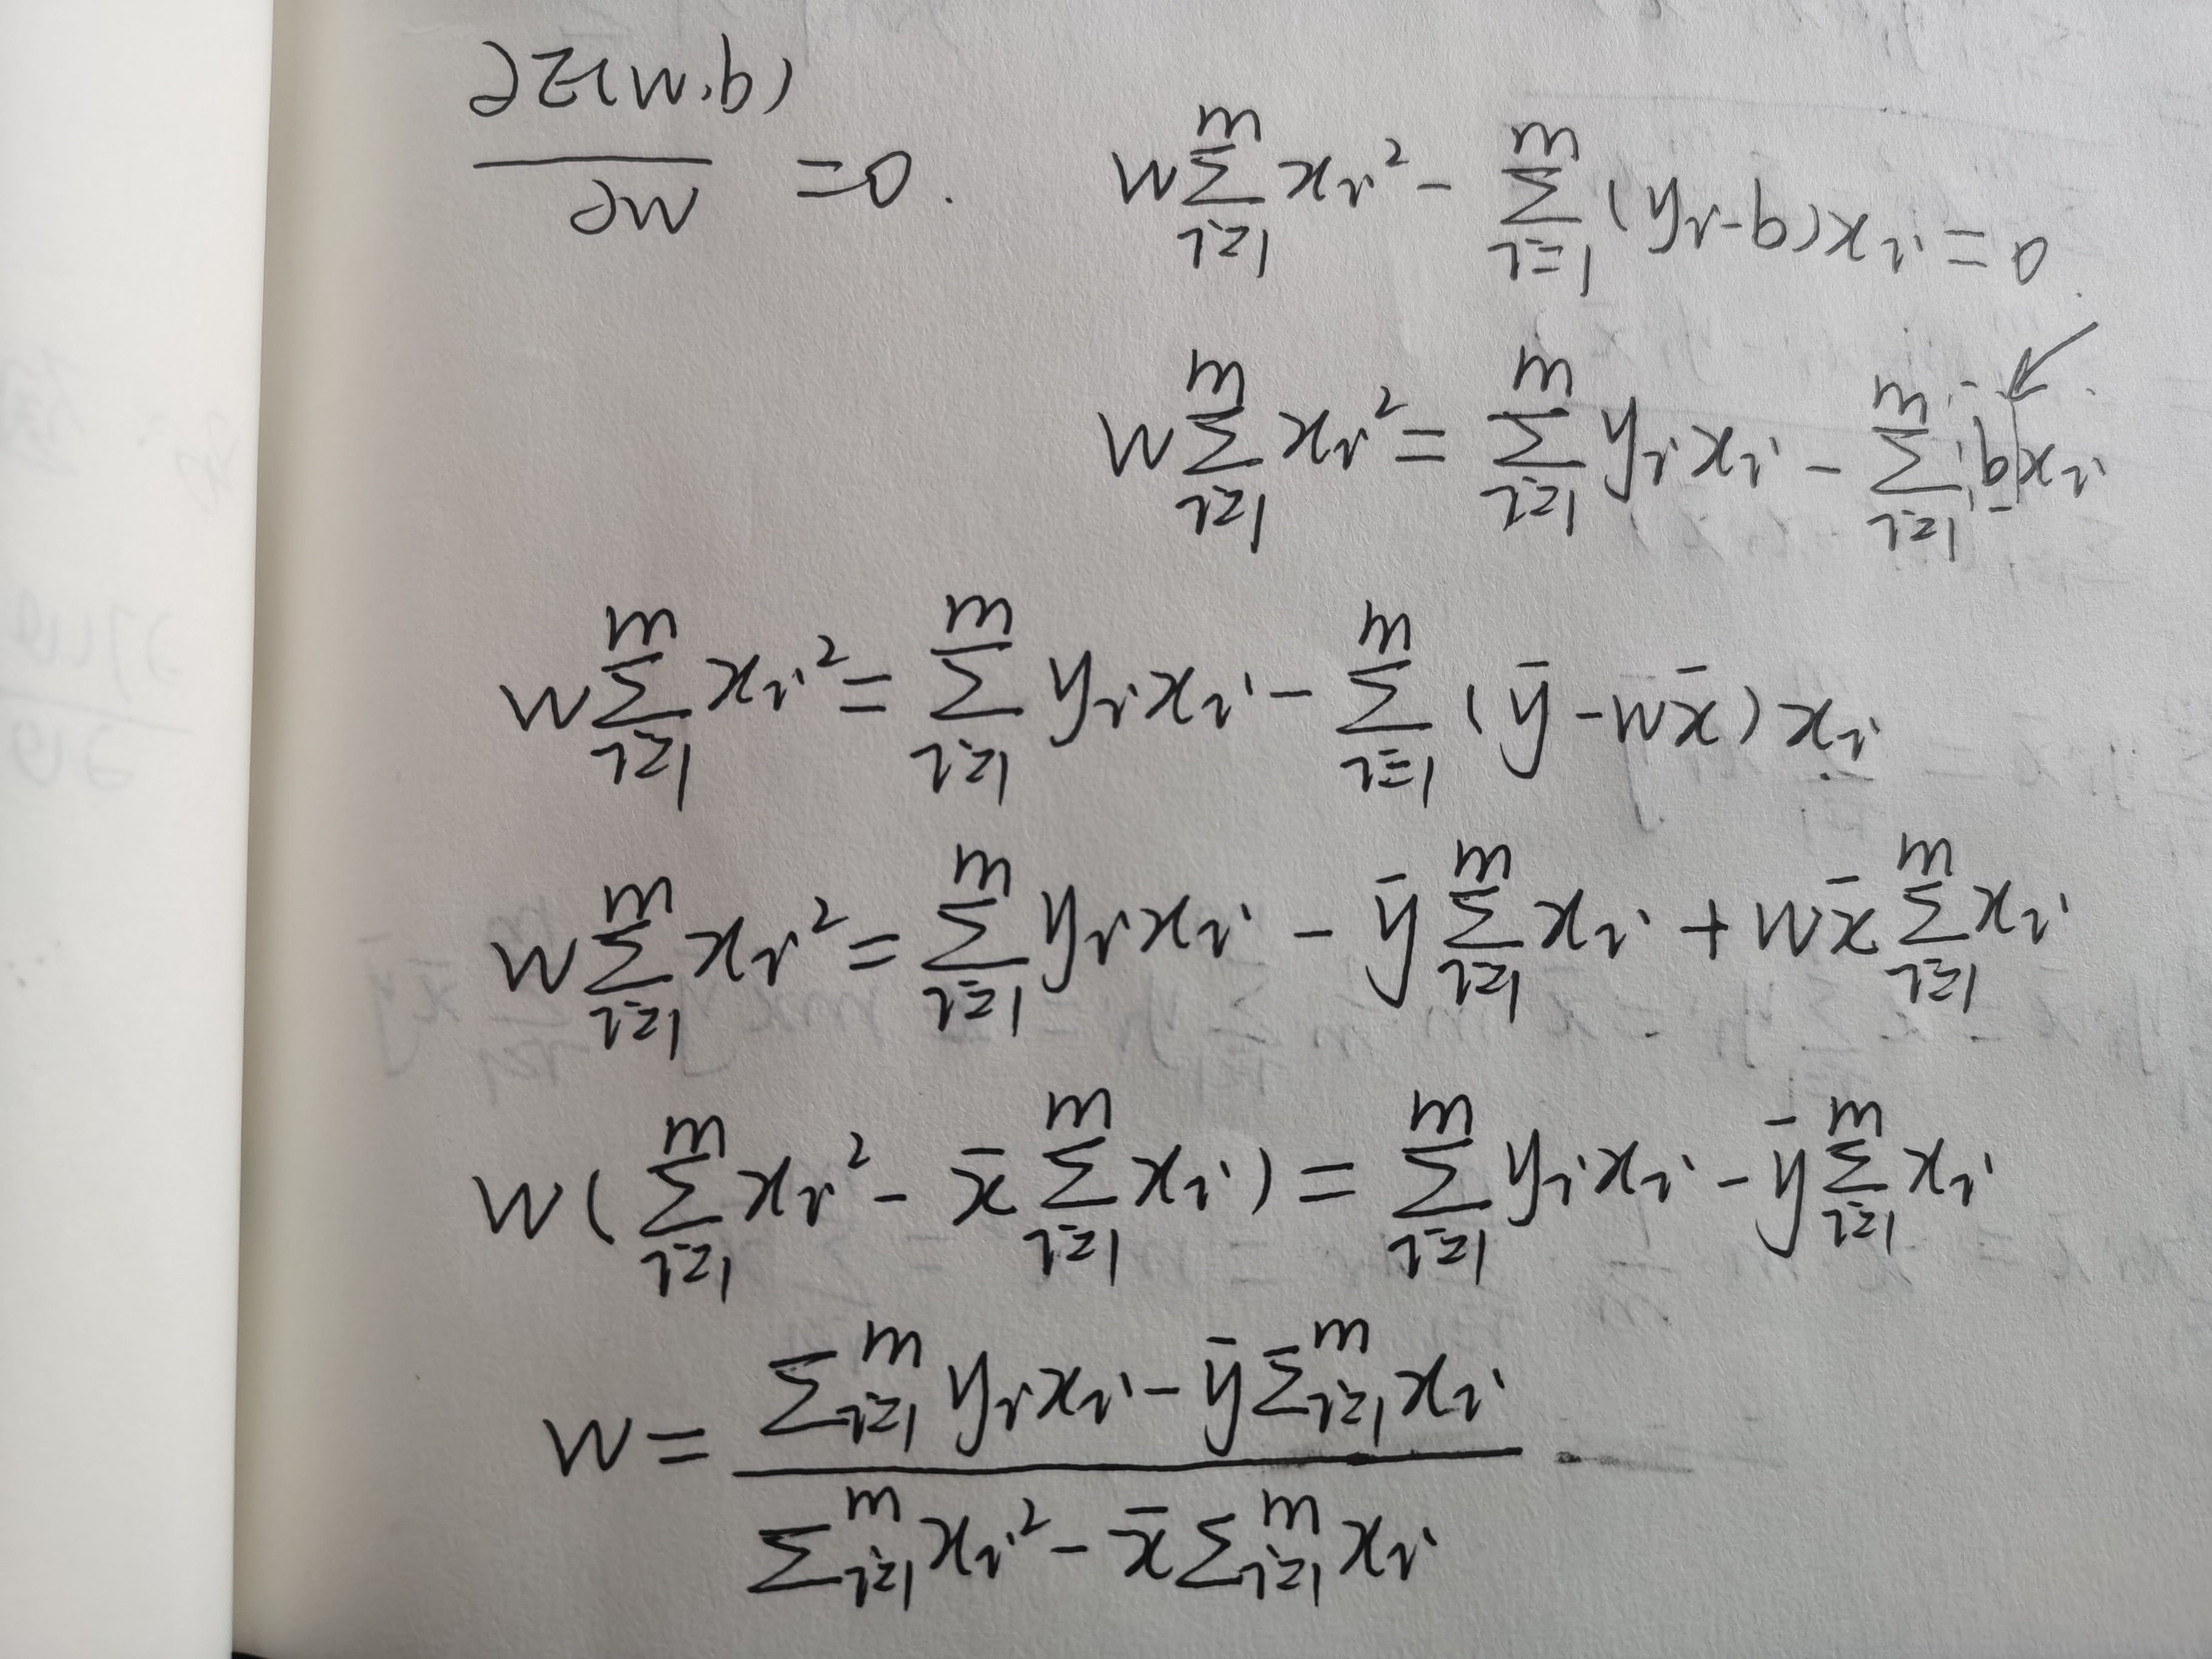 ∂E(w,b)/∂w = 0.    w∑_{i=1}^{m} x_i² − ∑_{i=1}^{m} (y_i − b)x_i = 0
w∑_{i=1}^{m} x_i² = ∑_{i=1}^{m} y_i x_i − ∑_{i=1}^{m} b x_i
w∑_{i=1}^{m} x_i² = ∑_{i=1}^{m} y_i x_i − ∑_{i=1}^{m} (ȳ − wx̄)x_i
w∑_{i=1}^{m} x_i² = ∑_{i=1}^{m} y_i x_i − ȳ∑_{i=1}^{m} x_i + wx̄∑_{i=1}^{m} x_i
w(∑_{i=1}^{m} x_i² − x̄∑_{i=1}^{m} x_i) = ∑_{i=1}^{m} y_i x_i − ȳ∑_{i=1}^{m} x_i
w = (∑_{i=1}^{m} y_i x_i − ȳ∑_{i=1}^{m} x_i) / (∑_{i=1}^{m} x_i² − x̄∑_{i=1}^{m} x_i)